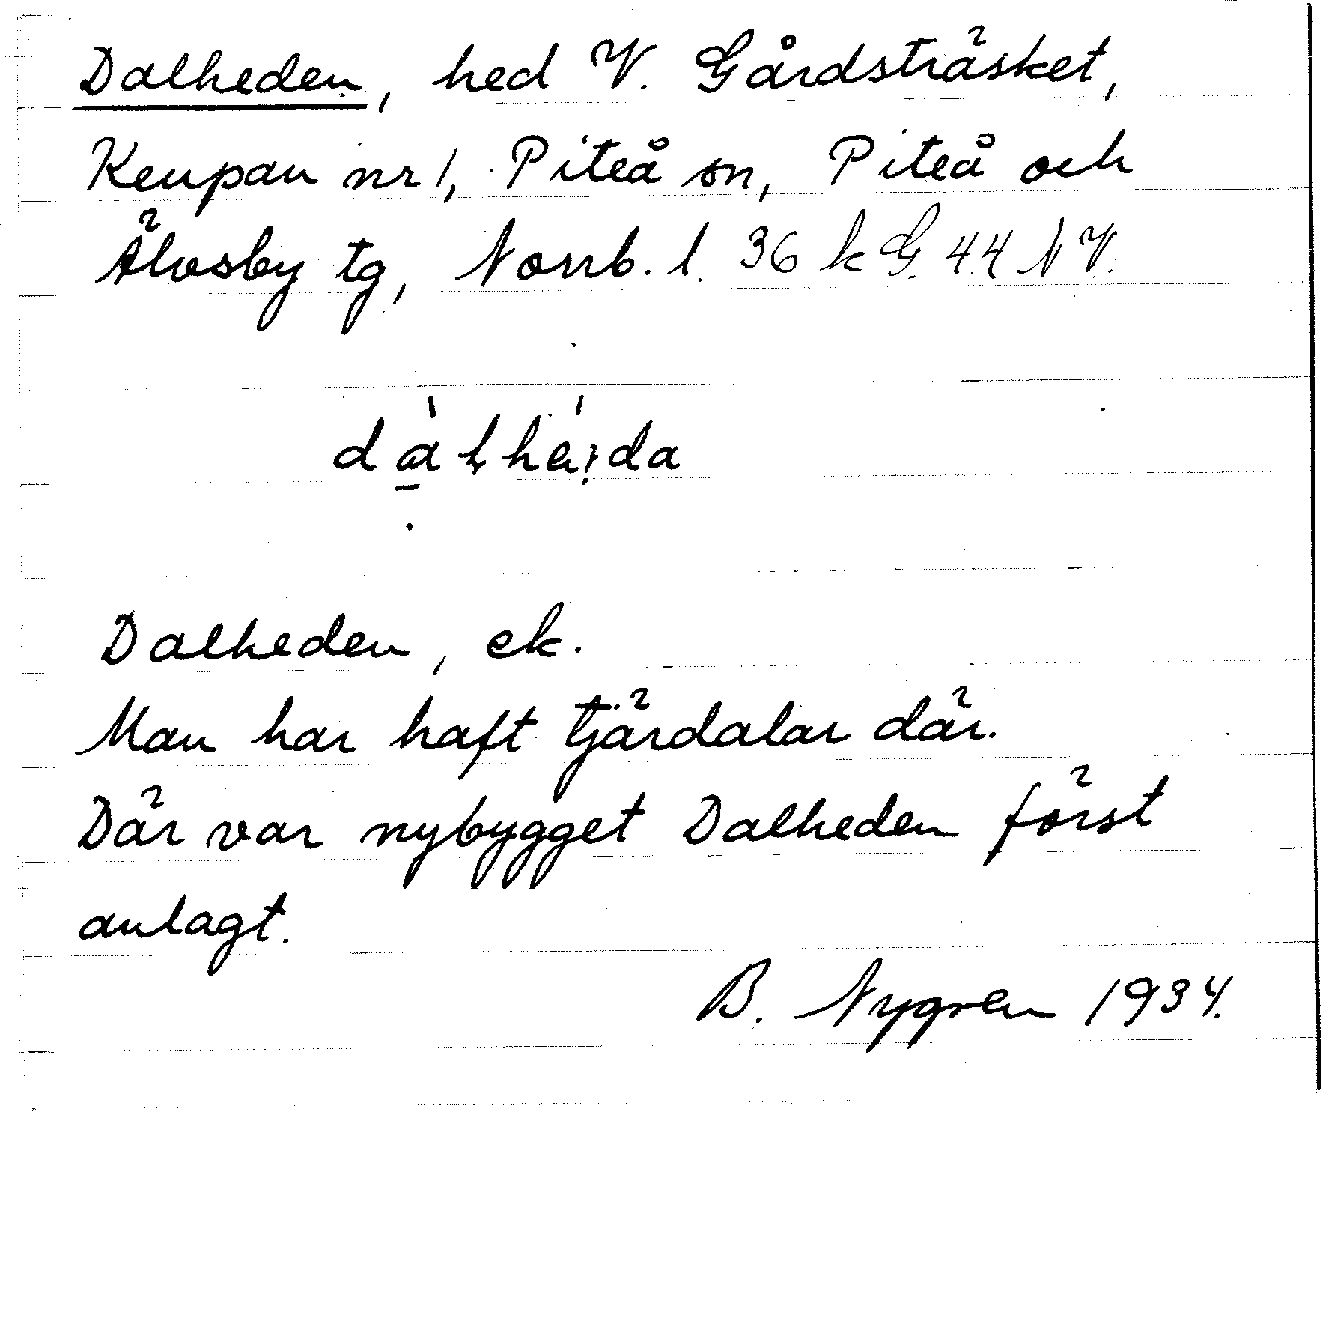 Dalheden, hed V. Gårdsträsket,
Keupan nr 1, Piteå sn, Piteå och
Älvsby tg, Norrb. l. 36 k G. 44 N V.
Dalheden, ek.
Man har haft tjärdalar där.
Där var nybygget Dalheden först
anlagt.
B. Nygren 1934.